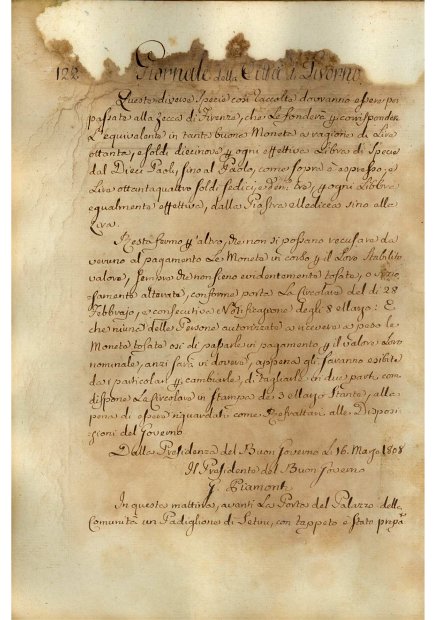 122 Giornale della Città di Livorno
Queste diverse specie così raccolte dovranno essere poi
passate alla Zecca di Firenze, che le fonderà, e corrisponderà
L'equivalente in tante buone Monete a ragione di Lire
ottanta, e soldi diecinove per ogni effettiva Libra di Specie
dal Dieci Paoli, sino al Paolo, come sopra è espresso, e
Lire ottantaquattro soldi sedici, e den. tre, per ogni Libbra
egualmente effettiva, dalla Piastra ellediecea sino alla
Lira.
Resta fermo per altro, che non si possano recusare da
veruno al pagamento Le Monete in corso per il Loro Stabilito
valore, sempre che non sieno evidentemente tosate, o
samente alterate, conforme porta La Circolare del di 28
Febbrajo, e consecutiva Notificazione degli 8 Marzo: E
che niuna delle Persone autorizzate a ricevere a peso le
Monete tosate osi di passarle in pagamento per il valore Loro
nominale, anzi sarà in dovere, appena gli saranno esibite
da i particolari per cambiarle, di tagliarle in due parti, come
dispone La Circolare in stampa de 3 Marzo Stante, alla
pena di essere riguardati come Refrattari alle Disposi-
zioni del Governo.
Dalla Presidenza del Buon Governo Li 16. Marzo 1808
Il Presidente del Buon Governo
G. Piamonti
In questa mattina, avanti La Porta del Palazzo della
Comunità un Padiglione di Setini, con tappeto è stato prepa